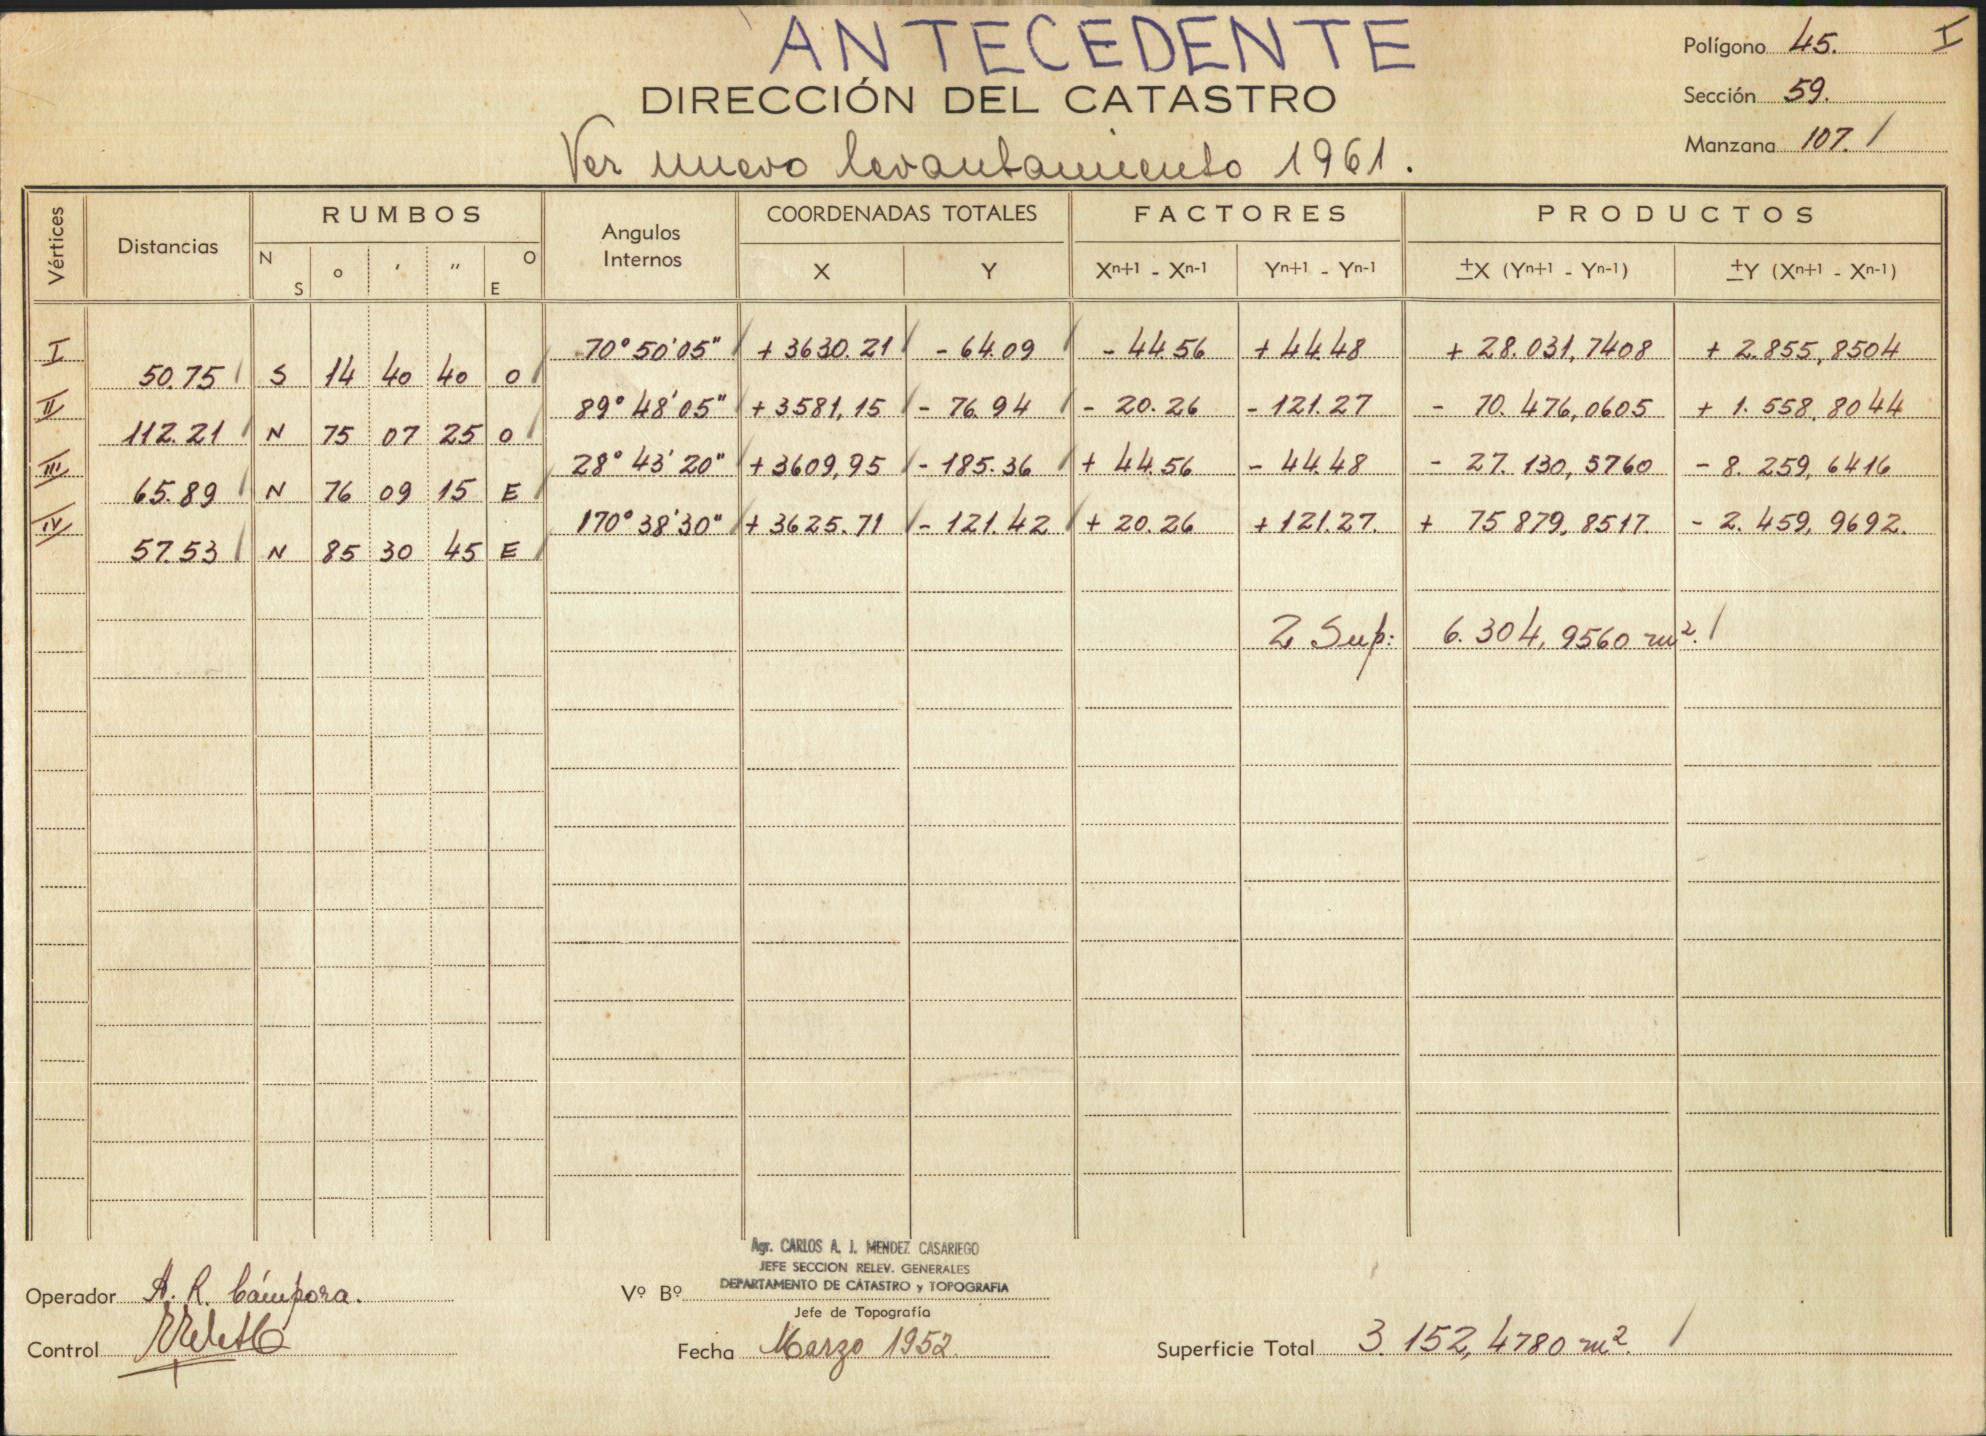 ANTECEDENTE
DIRECCIÓN DEL CATASTRO
Ver nuevo levantamiento 1961.
Polígono 45. I
Sección 59.
Manzana 107. /
Vértices Distancias RUMBOS Angulos Internos COORDENADAS TOTALES FACTORES PRODUCTOS
N S o ' " O E X Y Xn+1 - Xn-1 Yn+1 - Yn-1 ±X (Yn+1 - Yn-1) ±Y (Xn+1 - Xn-1)
I 70° 50' 05" + 3630.21 - 64.09 - 44.56 + 44.48 + 28.031,7408 + 2.855,8504
50.75 S 14 40 40 O
II 89° 48' 05" + 3581,15 - 76.94 - 20.26 - 121.27 - 70.476,0605 + 1.558,8044
112.21 N 75 07 25 O
III 28° 43' 20" + 3609,95 - 185.36 + 44.56 - 44.48 - 27.130,5760 - 8.259,6416
65.89 N 76 09 15 E
IV 170° 38' 30" + 3625.71 - 121.42 + 20.26 + 121.27. + 75 879,8517. - 2.459,9692.
57.53 N 85 30 45 E
2 Sup: 6.304,9560 m². /
Agr. CARLOS A. J. MENDEZ CASARIEGO
JEFE SECCION RELEV. GENERALES
DEPARTAMENTO DE CATASTRO y TOPOGRAFIA
Operador A. R. Cámpora.
Vº Bº
Jefe de Topografía
Control
Fecha Marzo 1952.
Superficie Total 3.152,4780 m². /